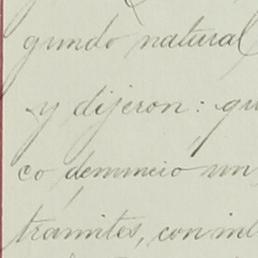 gundo natural
y dijeron: qu
co denuncio un
tramites, con inl